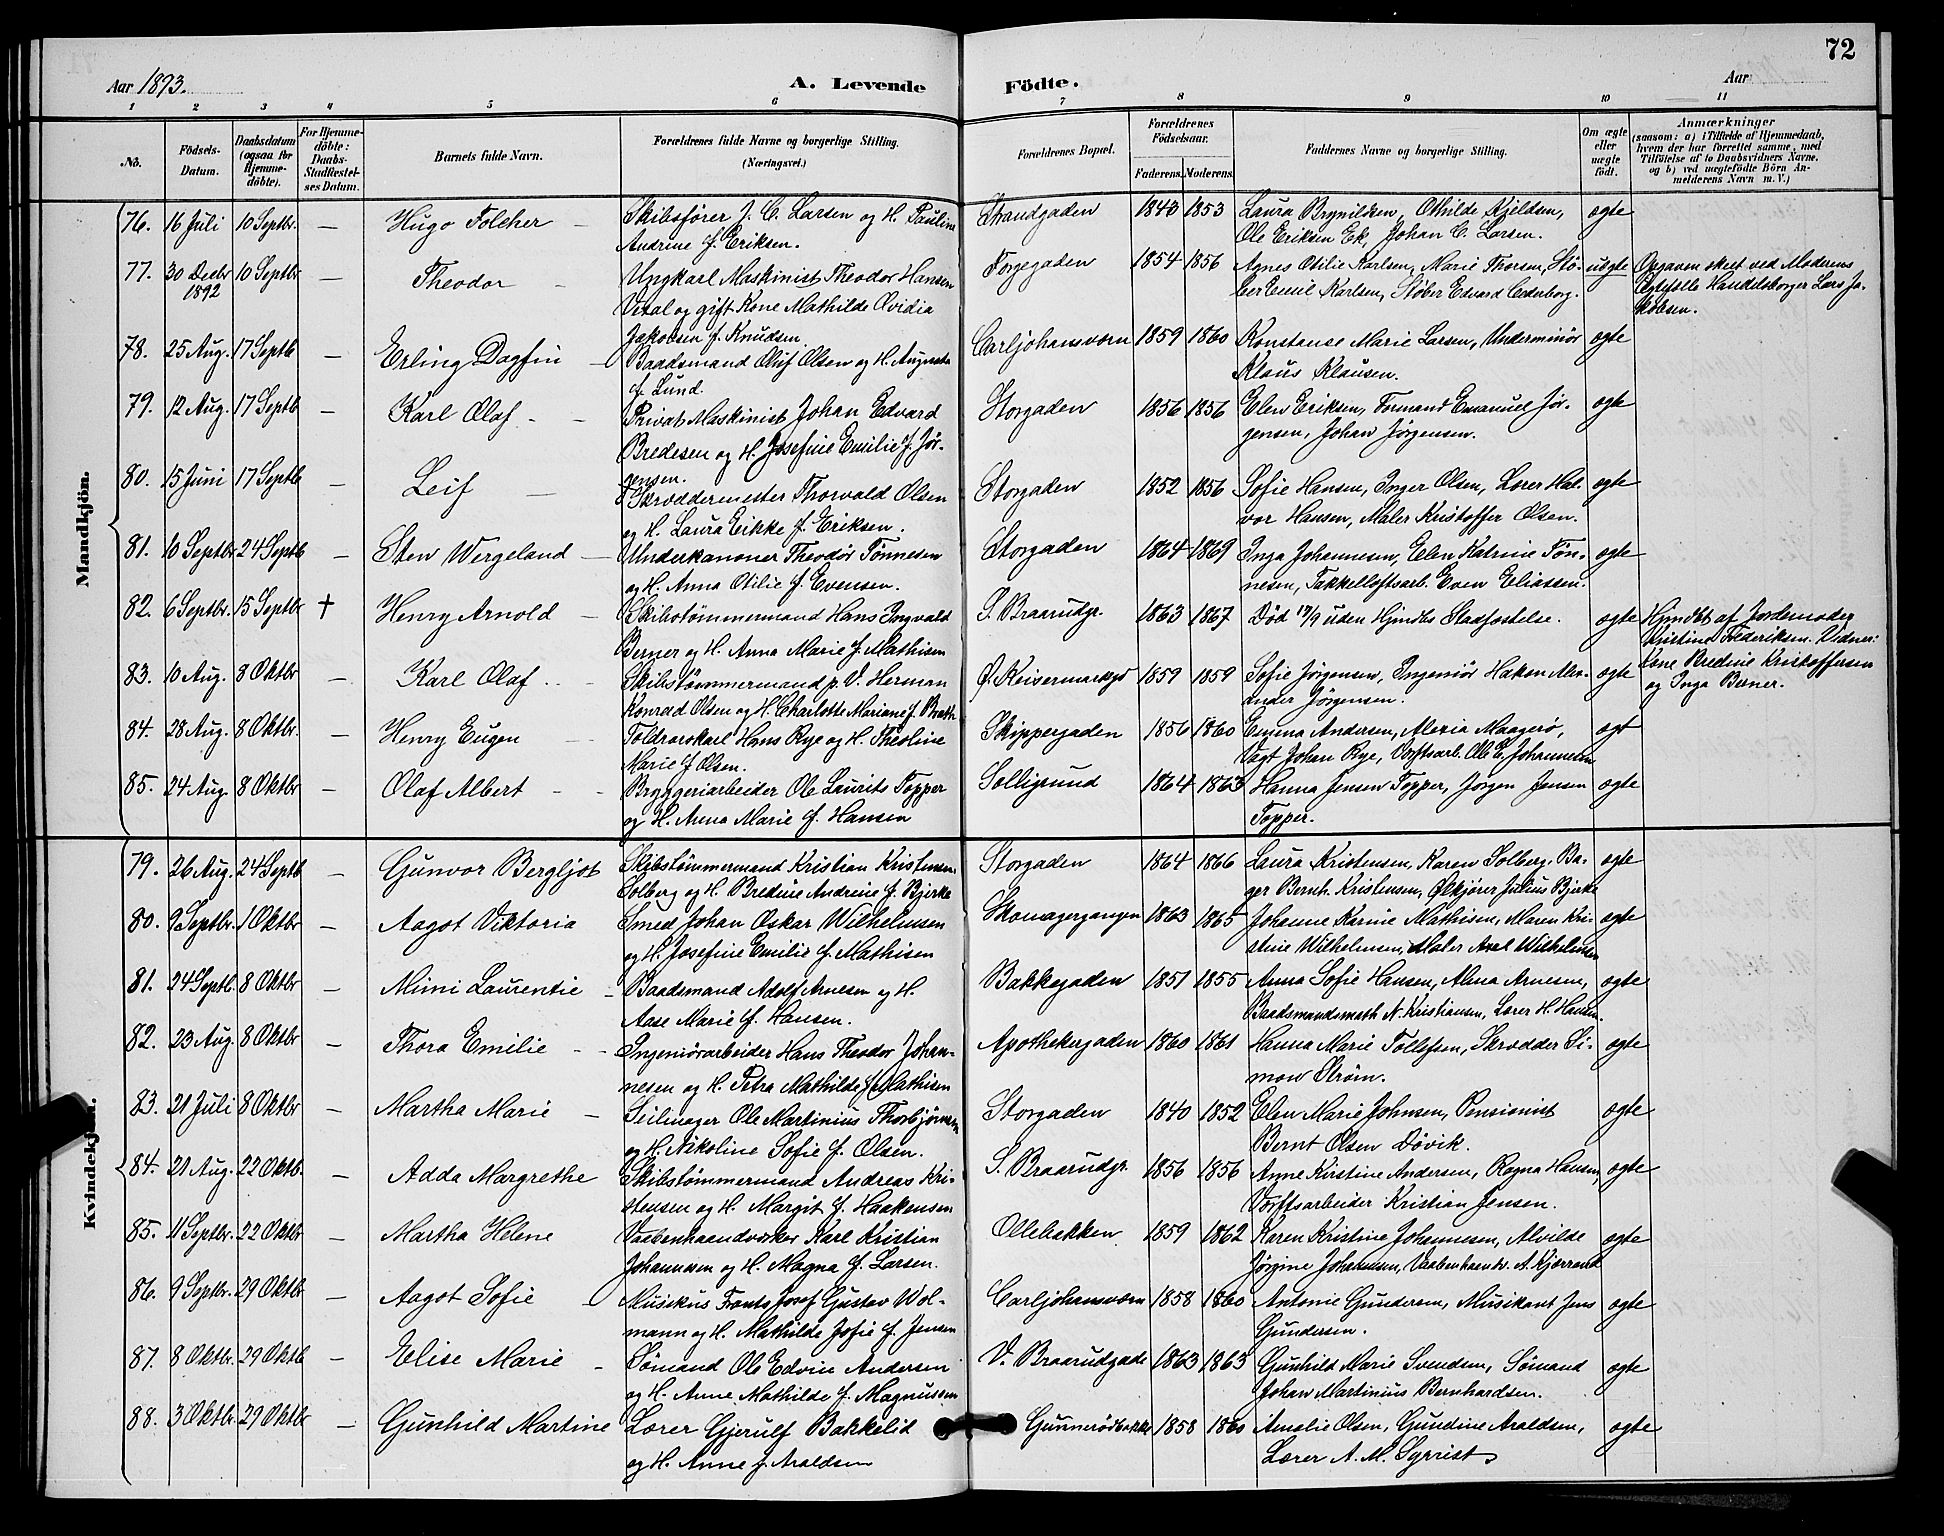 72
Aar 1893. A. Levende Födte. Aar
1 2 3 4 5 6 7 8 9 10 11
No. Födsels-Datum. Daabsdatum (ogsaa for Hjemme-döbte). For Hjemme-döbte: Daabs-Stadfæstel-ses Datum. Barnets fulde Navn. Forældrenes fulde Navne og borgerlige Stilling. (Næringsvei.) Forældrenes Bopæl. Forældrenes Födselsaar. Faderens. Moderens. Faddernes Navne og borgerlige Stilling. Om ægte eller uægte födt. Anmærkninger (saasom: a) i Tilfælde af Hjemmedaab, hvem der har forrettet samme, med Tilföielse af to Daabsvidners Navne, og b) ved uægtefödte Börn An-melderens Navn m. V.)
Mandkjön.
76. 16 Juli 10 Septbr. — Hugo Folcher — Skibsfører J. C. Larsen og H. Pauline Strandgaden 1843 1853 Laura Brynildsen, Othilde Kjeldsen, ægte
Andrine f. Eriksen. Ole Eriksen Ek, Johan C. Larsen.
77. 30 Decbr 1892 10 Septbr — Theodor — Ungkarl Maskinist Theodor Hansen Torgegaden 1854 1856 Agnes Otilie Karlsen, Marie Thorsen, Stø- uægte Opgaven skeet ved Moderens
Vetal og gift Kone Mathilde Ovidia ber Emil Karlsen, Støber Edvard Cederborg. Ægtefælle Handelsborger Lars Ja-
Jakobsen f. Knudsen. kobsen.
78. 25 Aug. 17 Septb — Erling Dagfin — Baadsmand Oluf Olsen og H. Augusta Carljohansværn 1859 1860 Konstanse Marie Larsen, Underminør ægte
f. Lund. Klaus Klausen.
79. 12 Aug. 17 Septb — Karl Olaf — Privat Maskinist Johan Edvard Storgaden 1856 1856 Elen Eriksen, Formand Emanuel Jør- ægte
Bredesen og H. Josefine Emilie f. Jør- gensen, Johan Jørgensen.
gensen.
80. 15 Juni 17 Septb — Leif — Skræddermester Thorvald Olsen Storgaden 1852 1856 Sofie Hansen, Inger Olsen, Lærer Hal- ægte
og H. Laura Eikke f. Eriksen. vor Hansen, Maler Kristoffer Olsen.
81. 10 Septbr 24 Septb — Sten Wergeland — Underkanoner Theodor Tønnesen Storgaden 1864 1869 Inga Johannesen, Elen Katrine Tøn- ægte
og H. Anna Otilie f. Evensen. nesen, Takkelloftsarb. Even Eliassen.
82. 6 Septbr. 15 Septbr † Henry Arnold — Skibstømmermand Hans Ingvald S. Braarudgr. 1863 1867 Død 17/9 uden Hjmdbs Stadfæstelse. ægte Hjmdbt af Jordemoder
Berner og H. Anna Marie f. Mathisen Kristine Frederiksen. Vidner:
83. 10 Aug. 8 Oktbr — Karl Olaf — Skibstømmermand p. V. Herman Ø. Keisermarksgd 1859 1859 Sofie Jørgensen, Ingeniør Hakon Alex- ægte Kone Bredine Kristoffersen
Konrad Olsen og H. Charlotte Mariane f. Brath ander Jørgensen. og Inga Berner.
84. 28 Aug. 8 Oktbr. — Henry Eugen — Toldrorskarl Hans Rye og H. Theoline Skippergaden 1856 1860 Emma Andersen, Alexia Maagerø, ægt
Marie f. Olsen. Vagt Johan Rye, Værftsarb. Ole E. Johannesen
85. 24 Aug. 8 Oktbr — Olaf Albert — Bryggeriarbeider Ole Laurits Topper Solligrund 1864 1863 Hanna Jensen Topper, Jørgen Jensen ægte
og H. Anna Marie f. Hansen Topper.
Kvindekjön.
79. 26 Aug. 24 Septb — Gunvor Bergljot Skibstømmermand Kristian Kristensen Storgaden 1864 1866 Laura Kristensen, Karen Solberg, Ba- ægte
Solberg og H. Bredine Andrine f. Bjerke ger Bernh. Kristensen, Ølkjører Julius Bjerke
80. 9 Septbr. 1 Oktbr — Aagot Viktoria Smed Johan Oskar Wilhelmsen Skomagergangen 1863 1865 Johanne Karine Mathisen, Maren Kri- ægte
og H. Josefine Emilie f. Mathisen stine Wilhelmsen, Maler Axel Wilhelmsen
81. 24 Septb. 8 Oktbr — Mimi Laurentie — Baadsmand Adolf Arnesen og H. Bakkegaden 1851 1855 Anna Sofie Hansen, Alma Arnesen, ægte
Aase Marie f. Hansen. Baadsmandsmath N. Kristiansen, Lærer H. Hansen.
82. 23 Aug. 8 Oktbr — Thora Emilie — Ingeniørarbeider Hans Theodor Johan- Apothekergaden 1860 1861 Hanna Marie Tollefsen, Skrædder Si- ægte
nesen og H. Petra Mathilde f. Mathisen mon Strøm.
83. 21 Juli 8 Oktbr — Martha Marie — Seilmager Ole Martinius Thorbjørnsen Storgaden 1840 1852 Elen Marie Johnsen, Pensionist ægte
og H. Nikoline Sofie f. Olsen. Bernt Olsen Døvik.
84. 21 Aug. 22 Oktb. — Adda Margrethe Skibstømmermand Andreas Kri- S. Braarudgr. 1856 1856 Anne Kirstine Andersen, Ragna Hansen, ægte
stensen og H. Margit f. Haakensen Værftsarbeider Kristian Jensen.
85. 11 Septbr. 22 Oktbr — Martha Helene Vaabenhaandværker Karl Kristian Ollebakken 1859 1862 Karen Kristine Johannesen, Alvilde ægte
Johannesen og H. Magna f. Larsen. Jørgine Johannesen, Vaabenhaandv. A. Kjærrand
86. 9 Septbr. 29 Oktbr — Aagot Sofie — Musikus Frants Josef Gustav Wol- Carljohansværn 1858 1860 Antonie Gundersen, Musikant Jens ægte
mann og H. Mathilde Josie f. Jensen Gundersen.
87. 8 Oktbr. 29 Oktb — Elise Marie — Sømand Ole Edvin Andersen V. Braarudgade 1863 1863 Gunhild Marie Svendsen, Sømand ægte
og H. Anne Mathilde f. Magnussen Johan Martinius Bernhardsen.
88. 3 Oktbr. 29 Oktbr — Gunhild Martine Lærer Gjerulf Bakkelid Gunnerødbakke 1858 1860 Amalie Olsen, Gundine Araldsen, ægte
og H. Anne f. Araldsen Lærer A. M. Syrrist